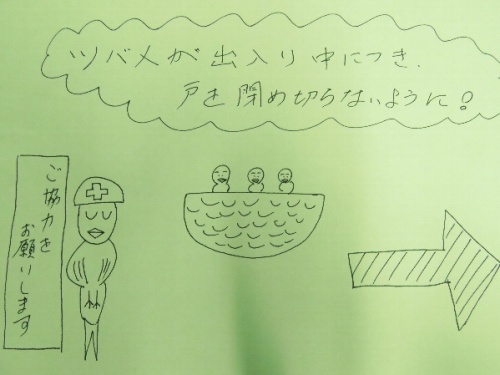 ツバメが出入り中につき、
戸を閉め切らないように!
ご協力を
お願いします